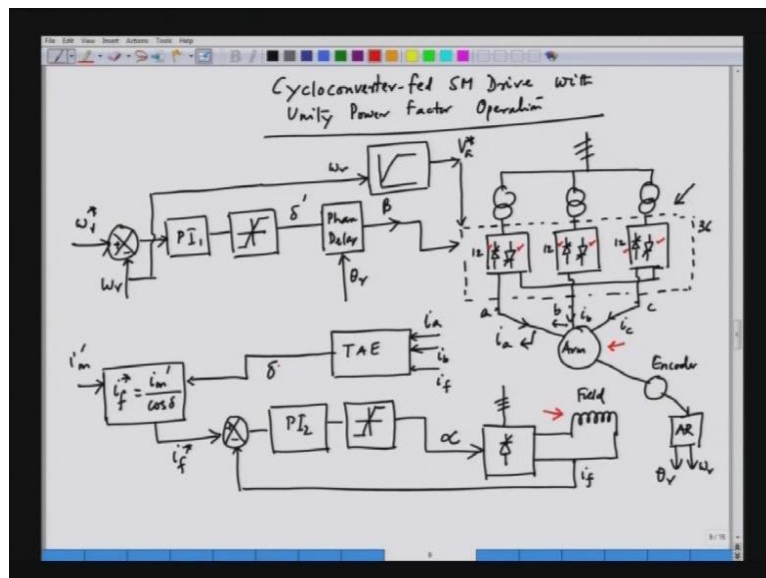 File Edit View Insert Actions Tools Help
Cycloconverter-fed SM Drive with
Unity Power Factor Operation
ωr
VR*
ωr*
+
-
PI1
δ'
Phase
Delay
β
36
12
12
12
ωr
θr
a
b
c
ia
ib
ic
Arm
Encoder
im'
if* = im'/cosδ
δ
TAE
ia
ib
if
if*
PI2
α
Field
if
AR
θr
ωr
9/15
9